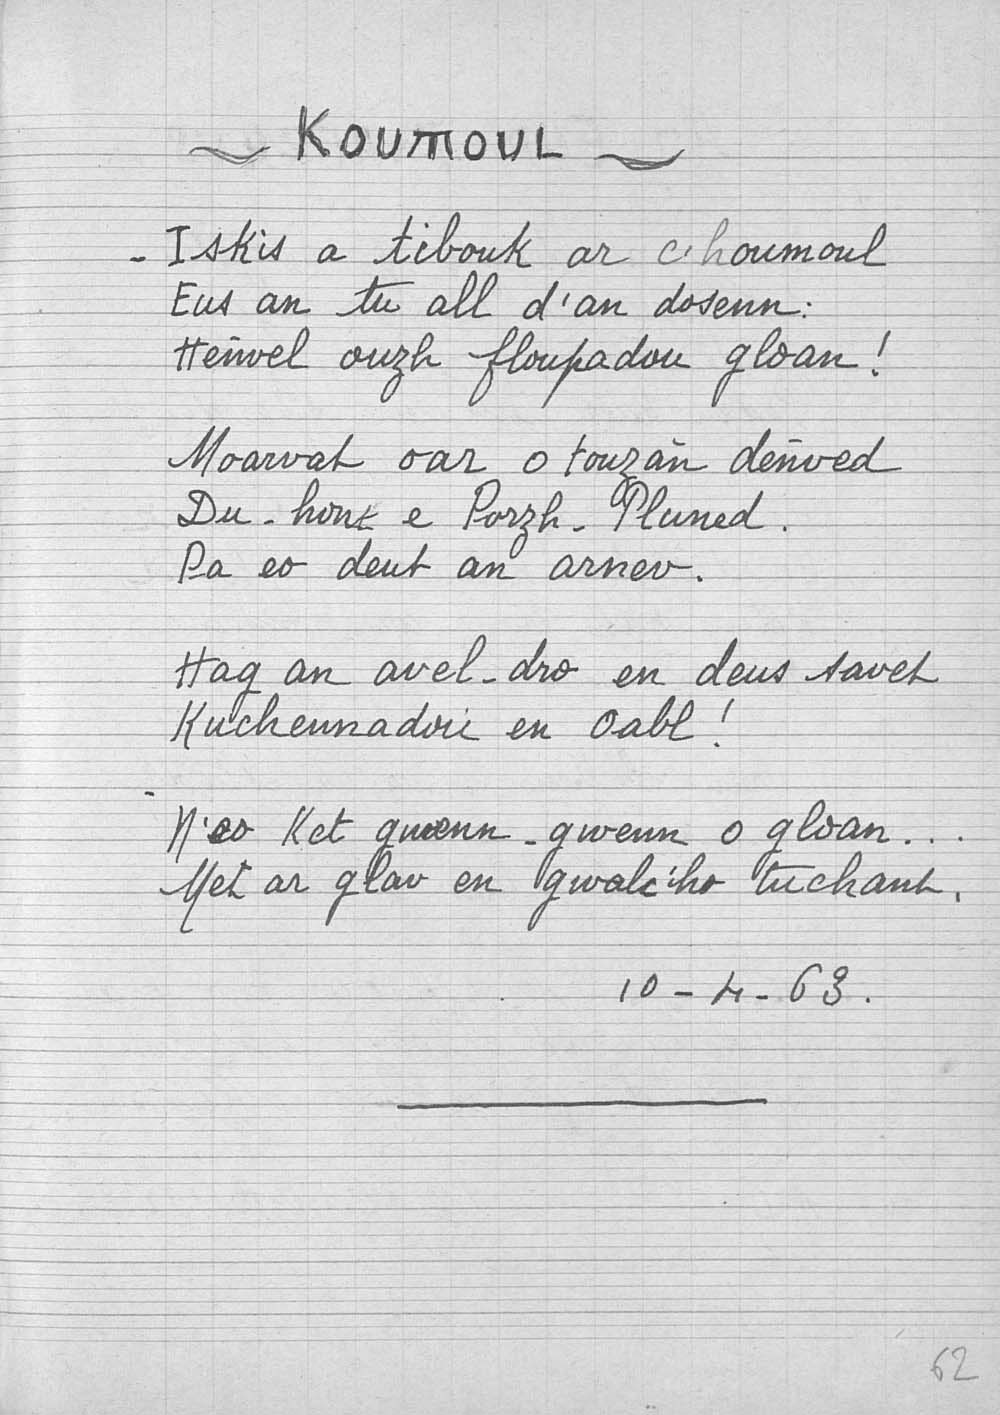 KOUMOUL
- Iskis a tibouk ar c'houmoul
Eus an tu all d'an dosenn:
Heñvel ouzh floupadou gloan!
Moarvat oar o touzañ deñved
Du-hont e Porzh-Pluned.
Pa eo deut an arnev.
Hag an avel-dro en deus savet
Kuchennadoù en Oabl!
- N'eo Ket gwenn-gwenn o gloan...
Met ar glav en gwalc'ho tuchant.
10-4-63.
62